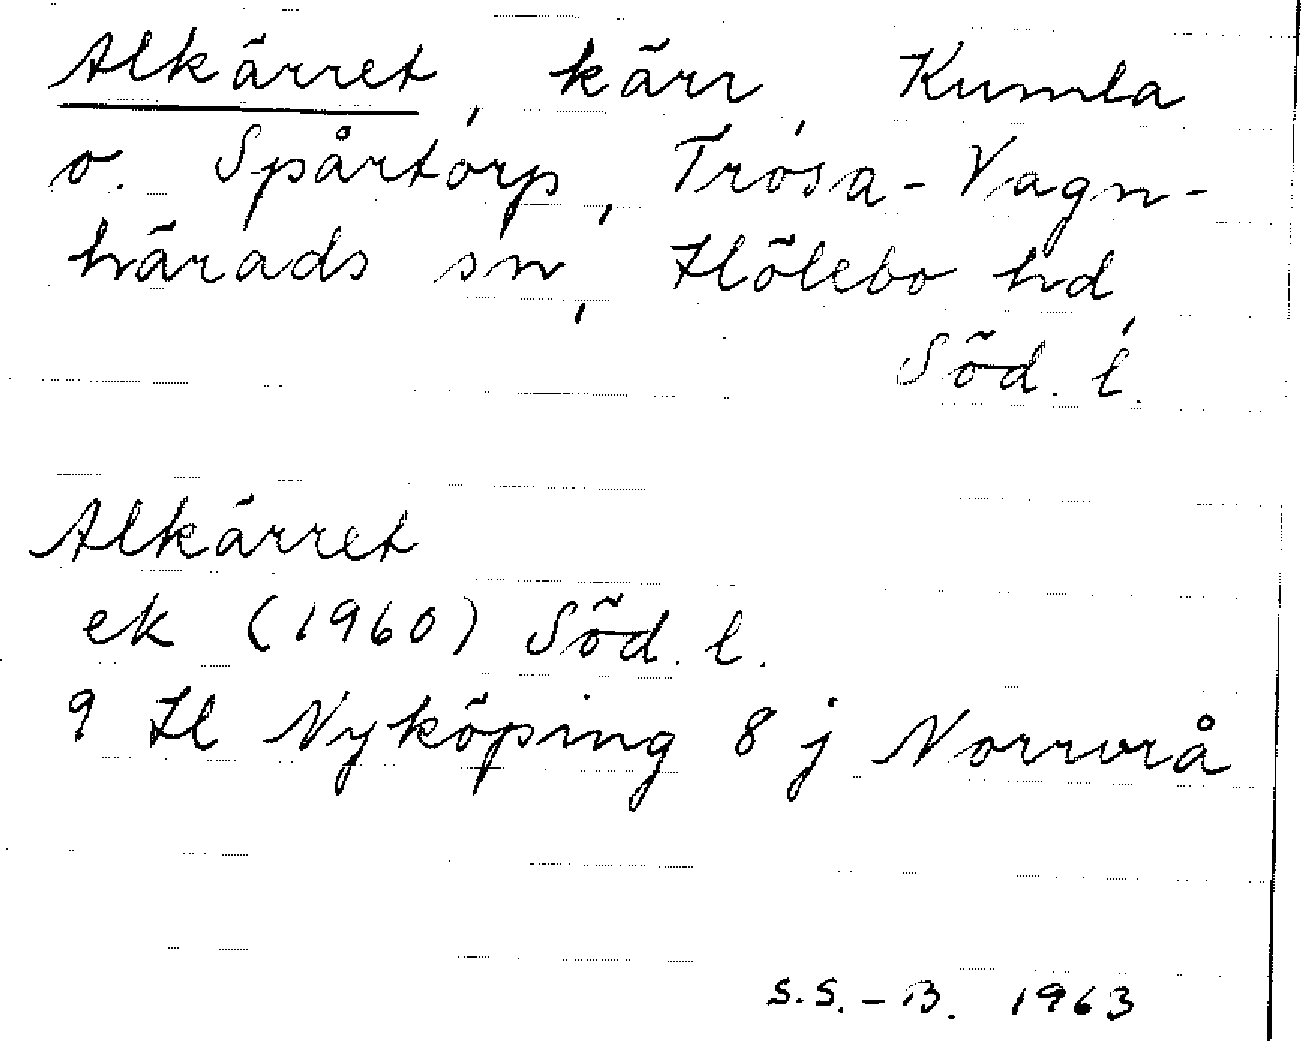 Alkärret, kärr, Kumla
o. Spårtorp, Trosa-Vagn-
härads sn, Hölebo hd,
Söd. l.
Alkärret
ek (1960) Söd. l.
9 H Nyköping 8 j Norrvrå
S.S.-B. 1963